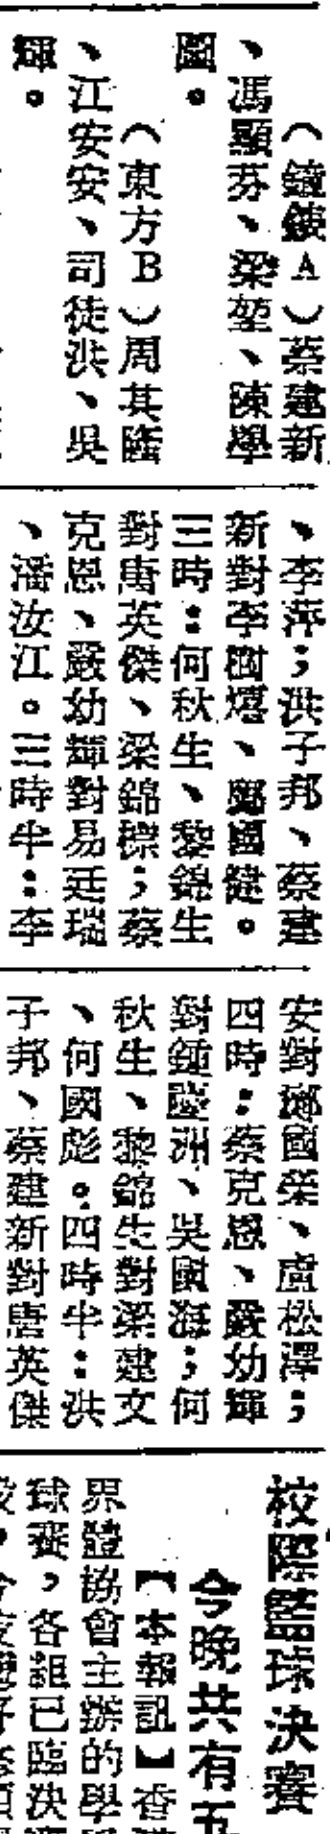 （鏡鋑A）蔡建新
、馮顯芬、梁堃、陳學
圖。
（東方B）周其隆
、江安安、司徒洪、吳
輝。
、李萍；洪子邦、蔡建
新對李樹熺、鄺國健。
三時：何秋生、黎錦生
對唐英傑、梁錦標；蔡
克恩、嚴幼輝對易廷瑞
、潘汝江。三時半：李
安對鄧國榮、盧松澤；
四時：蔡克恩、嚴幼輝
對鍾慶洲、吳國海；何
秋生、黎錦生對梁建文
、何國彪。四時半：洪
子邦、蔡建新對唐英傑
校際籃球決賽
今晚共有五
【本報訊】香港
界體協會主辦的學
球賽，各組已臨決